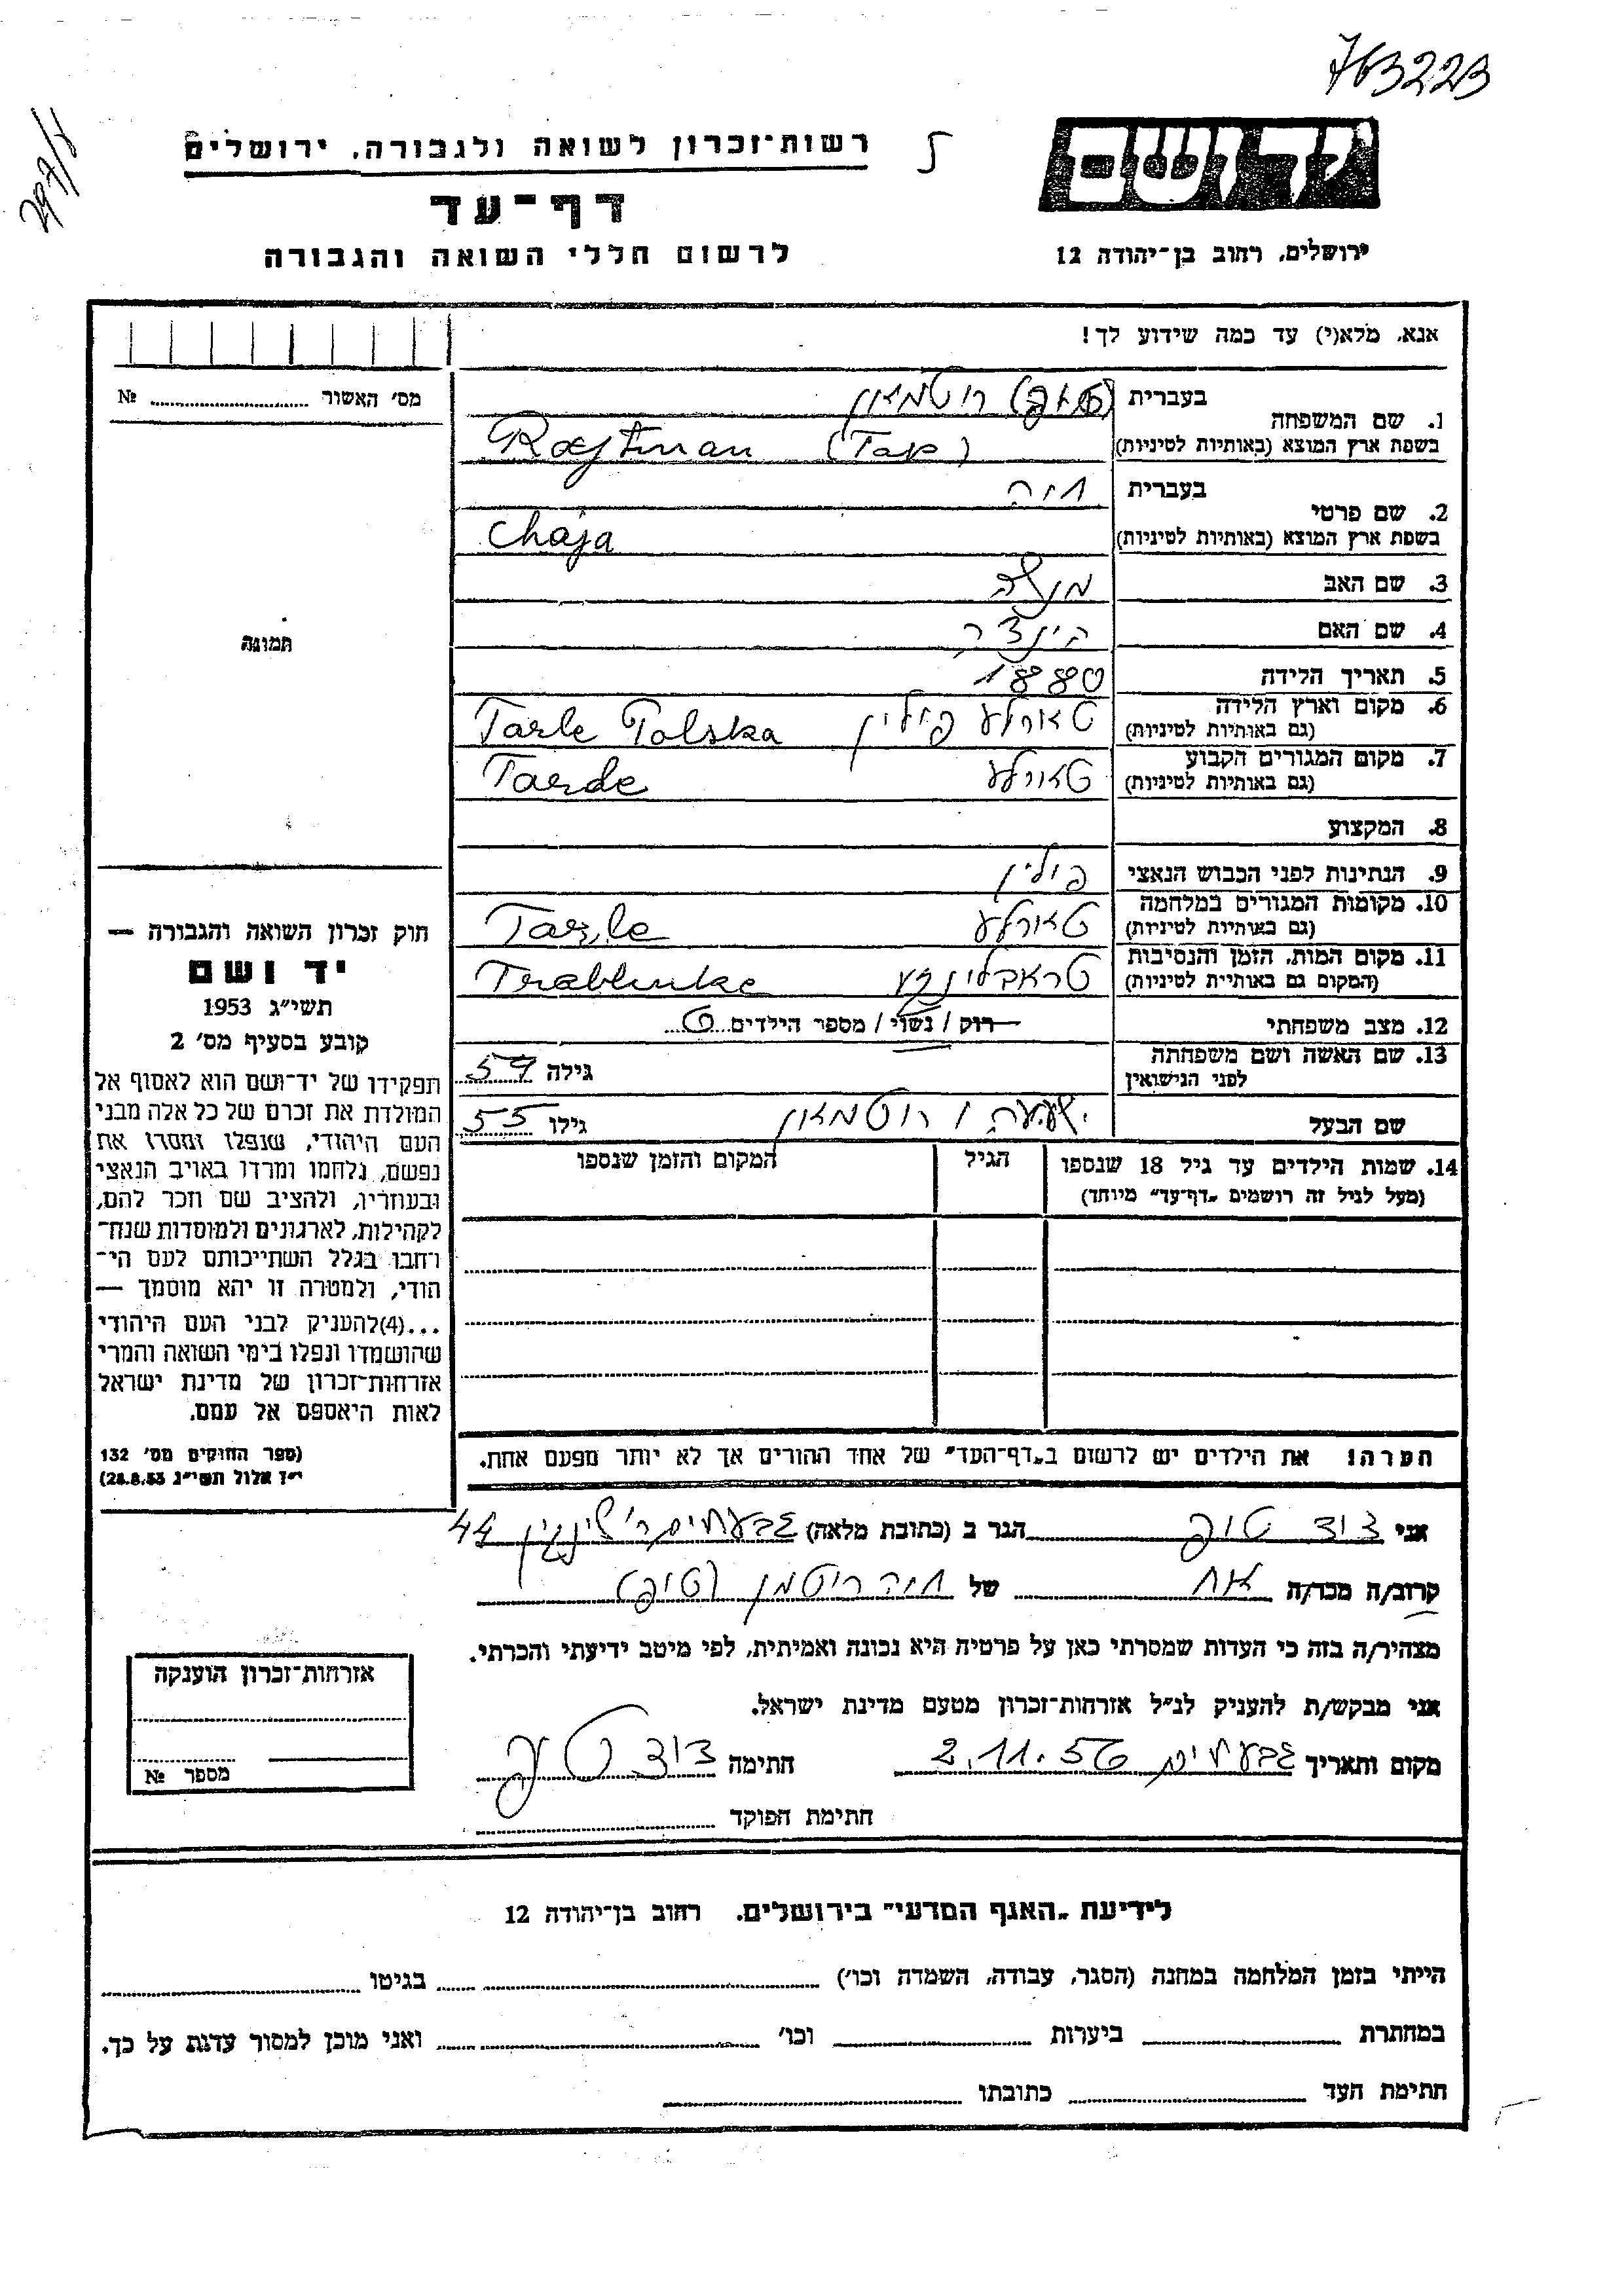 763223
רשות־זכרון לשואה ולגבורה, ירושלים
יד ושם
דף־עד
לרשום חללי השואה והגבורה
ירושלים, רחוב בן־יהודה 12
אנא, מלא(י) עד כמה שידוע לך!
מס' האשור № 
1. שם המשפחה
בעברית (טאפ) רוטמאן
בשפת ארץ המוצא (באותיות לטיניות) Rojtman (Tap)
2. שם פרטי
בעברית חיה
בשפת ארץ המוצא (באותיות לטיניות) Chaja
3. שם האב מנשה
4. שם האם הינדה
תמונה
5. תאריך הלידה 1880
6. מקום וארץ הלידה טארלע פולין Tarle Polska
(גם באותיות לטיניות)
7. מקום המגורים הקבוע טארלע Tarle
(גם באותיות לטיניות)
8. המקצוע
9. הנתינות לפני הכבוש הנאצי פולין
10. מקומות המגורים במלחמה טארלע Tarle
(גם באותיות לטיניות)
11. מקום המות, הזמן והנסיבות טראבלינקע Trablinke
(המקום גם באותיות לטיניות)
12. מצב משפחתי רוק / נשוי / מספר הילדים 6
13. שם האשה ושם משפחתה גילה 57
לפני הנישואין
שם הבעל ישעיהו רוטמאן גילו 55
14. שמות הילדים עד גיל 18 שנספו הגיל המקום והזמן שנספו
(מעל לגיל זה רושמים „דף־עד" מיוחד)
הערה! את הילדים יש לרשום ב„דף־העד" של אחד ההורים אך לא יותר מפעם אחת.
חוק זכרון השואה והגבורה —
יד ושם
תשי"ג 1953
קובע בסעיף מס' 2
תפקידו של יד־ושם הוא לאסוף אל
המולדת את זכרם של כל אלה מבני
העם היהודי, שנפלו ומסרו את
נפשם, נלחמו ומרדו באויב הנאצי
ובעוזריו, ולהציב שם וזכר להם,
לקהילות, לארגונים ולמוסדות שנח־
רחבו בגלל השתייכותם לעם הי־
הודי, ולמטרה זו יהא מוסמך —
...(4)להעניק לבני העם היהודי
שהושמדו ונפלו בימי השואה והמרי
אזרחות־זכרון של מדינת ישראל
לאות היאספם אל עמם.
(ספר החוקים מס' 132
י"ז אלול תשי"ג 28.8.53)
אני דוד טופ הגר ב (כתובת מלאה) גבעתיים רח' שינקין 44
קרוב/ה מכר/ה אח של חיה רוטמן (טופ)
מצהיר/ה בזה כי העדות שמסרתי כאן על פרטיה היא נכונה ואמיתית, לפי מיטב ידיעתי והכרתי.
אני מבקש/ת להעניק לנ"ל אזרחות־זכרון מטעם מדינת ישראל.
מקום ותאריך גבעתיים 2.11.56 חתימה דוד טופ
חתימת הפוקד
אזרחות־זכרון הוענקה
מספר №
לידיעת „האגף המדעי" בירושלים, רחוב בן־יהודה 12
הייתי בזמן המלחמה במחנה (הסגר, עבודה, השמדה וכו') בגיטו
במחתרת ביערות וכו' ואני מוכן למסור עדות על כך.
חתימת העד כתובתו